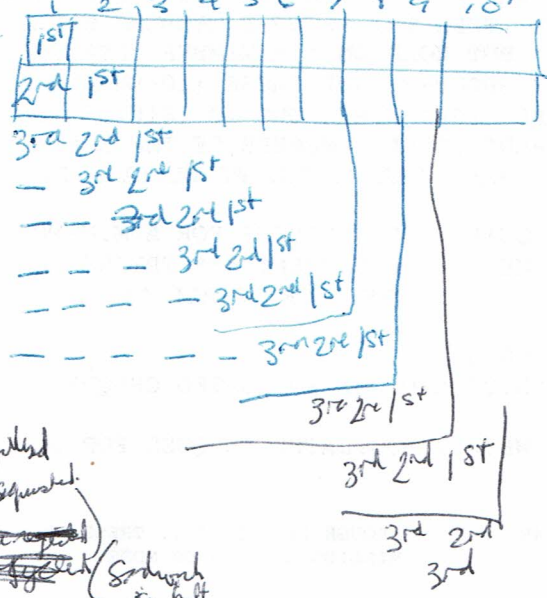 1 2 3 4 5 6 7 8 9 10
1st
2nd 1st
3rd 2nd 1st
— 3rd 2nd 1st
— — 3rd 2nd 1st
— — — 3rd 2nd 1st
— — — — 3rd 2nd 1st
— — — — — 3rd 2nd 1st
3rd 2nd 1st
3rd 2nd 1st
3rd 2nd
3rd
Sandwich